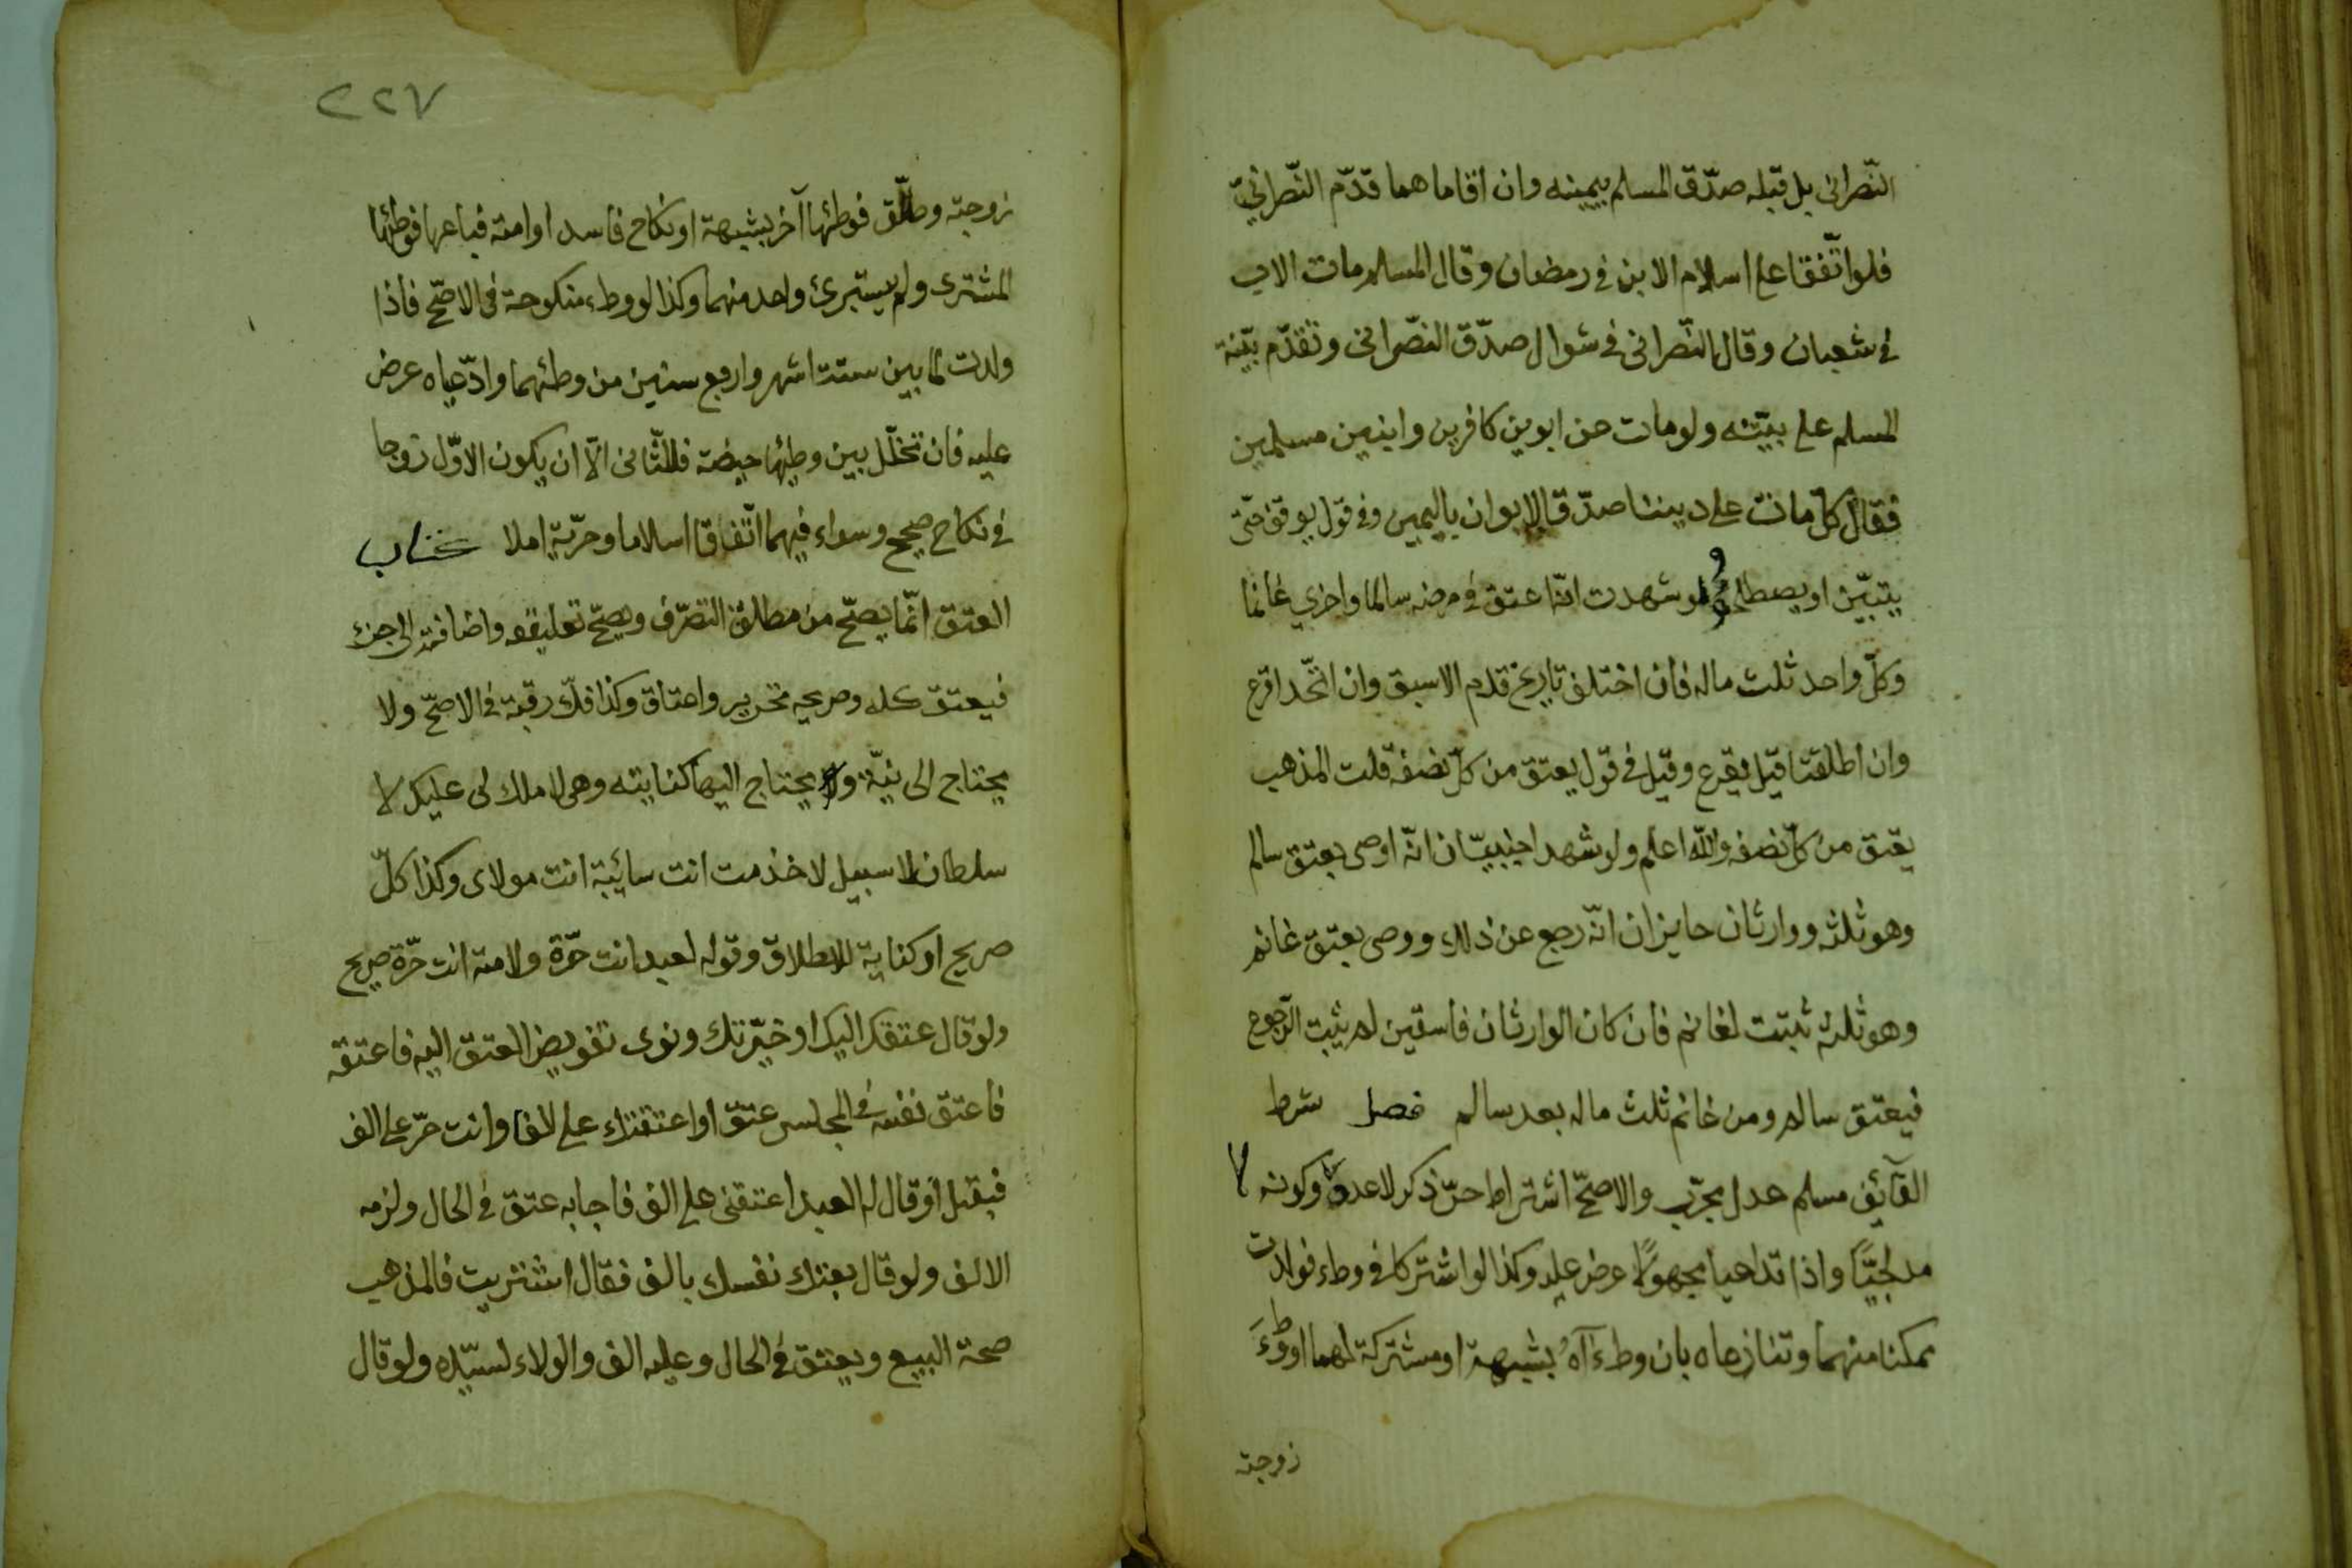 النّصرانى بل قبله صدّق المسلم بيمينه وان اقاماهما قدّم النّصرانىّ
فلو اتّفقا على اسلام الابن فى رمضان وقال المسلم مات الاب
فى شعبان وقال النّصرانى فى شوال صدّق النصّرانى وتقدّم بيّنة
المسلم على بيّنته ولو مات عن ابوين كافرين وابنين مسلمين
فقال كلّ مات على ديننا صدّق الابوان باليمين وفى قول يوقف حتّى
يتبيّن او يصطلحوا ولو شهدت انّه اعتق فى مرضه سالما واخرى غانما
وكلّ واحد ثلث ماله فان اختلف تاريخ قدم الاسبق وان اتّحد اقرع
وان اطلقتا قيل يقرع وقيل فى قول يعتق من كلّ نصفه قلت المذهب
يعتق من كلّ نصفه والله اعلم ولو شهد اجنبيّان انّه اوصى بعتق سالم
وهو ثلثه ووارثان حايزان انّه رجع عن ذلك ووصى بعتق غانم
وهو ثلثه ثبتت لغانم فان كان الوارثان فاسقين لم يثبت الرّجوع
فيعتق سالم ومن غانم ثلث ماله بعد سالم فصل شرط
القآئف مسلم عدل مجرّب والاصحّ اشتراط حرّ ذكر لا عدد وكونه لا
مدلجيّاً واذا تداعيا مجهولاً عرض عليه وكذا لو اشتركا فى وطء فولدت
ممكنا منهما وتنازعاه بان وطءآه بشبهة او مشتركة لهما او وطئ
زوجته
٢٢٧
زوجته وطلّق فوطئها آخر بشبهة او نكاح فاسد او امته فباعها فوطئها
المشترى ولم يستبرئ واحد منهما وكذا لو وطء منكوحة فى الاصّح فاذا
ولدت لما بين ستت اشهر واربع سنين من وطئهما وادّعياه عرض
عليه فان تخلّل بين وطيئها حيضة فللثّانى الّا ان يكون الاوّل زوجا
فى نكاح صحيح وسواء فيهما اتّفاقا اسلاما وحرّية ام لا كتاب
العتق انّما يصحّ من مطلق التصرّف ويصحّ تعليقه واضافته الى جزء
فيعتق كله وصريحه تحرير واعتاق وكذا فكّ رقبة فى الاصحّ ولا
يحتاج الى نيّة ويحتاج اليها كنايته وهى لا ملك لى عليك لا
سلطان لا سبيل لا خذمت انت سائبة انت مولاى وكذا كلّ
صريح او كناية للطلاق وقوله لعبد انت حرّة ولامة انت حرّة صريح
ولو قال عتقك اليك او خيّرتك ونوى تفويض العتق اليه فاعتقه
فاعتق نفسه فى المجلس عتق او اعتقتك على الف او انت حرّ على الف
فيقبل او قال له العبد اعتقنى على الف فاجابه عتق فى الحال ولزمه
الالف ولو قال بعتك نفسك بالف فقال اشتريت فالمذهب
صحة البيع ويعتق فى الحال وعليه الف والولاء لسيّده ولو قال